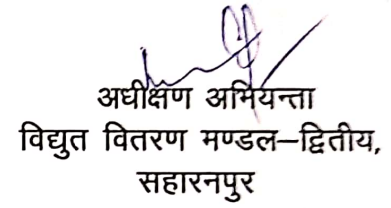 अधीक्षण अभियन्ता
विद्युत वितरण मण्डल–द्वितीय,
सहारनपुर